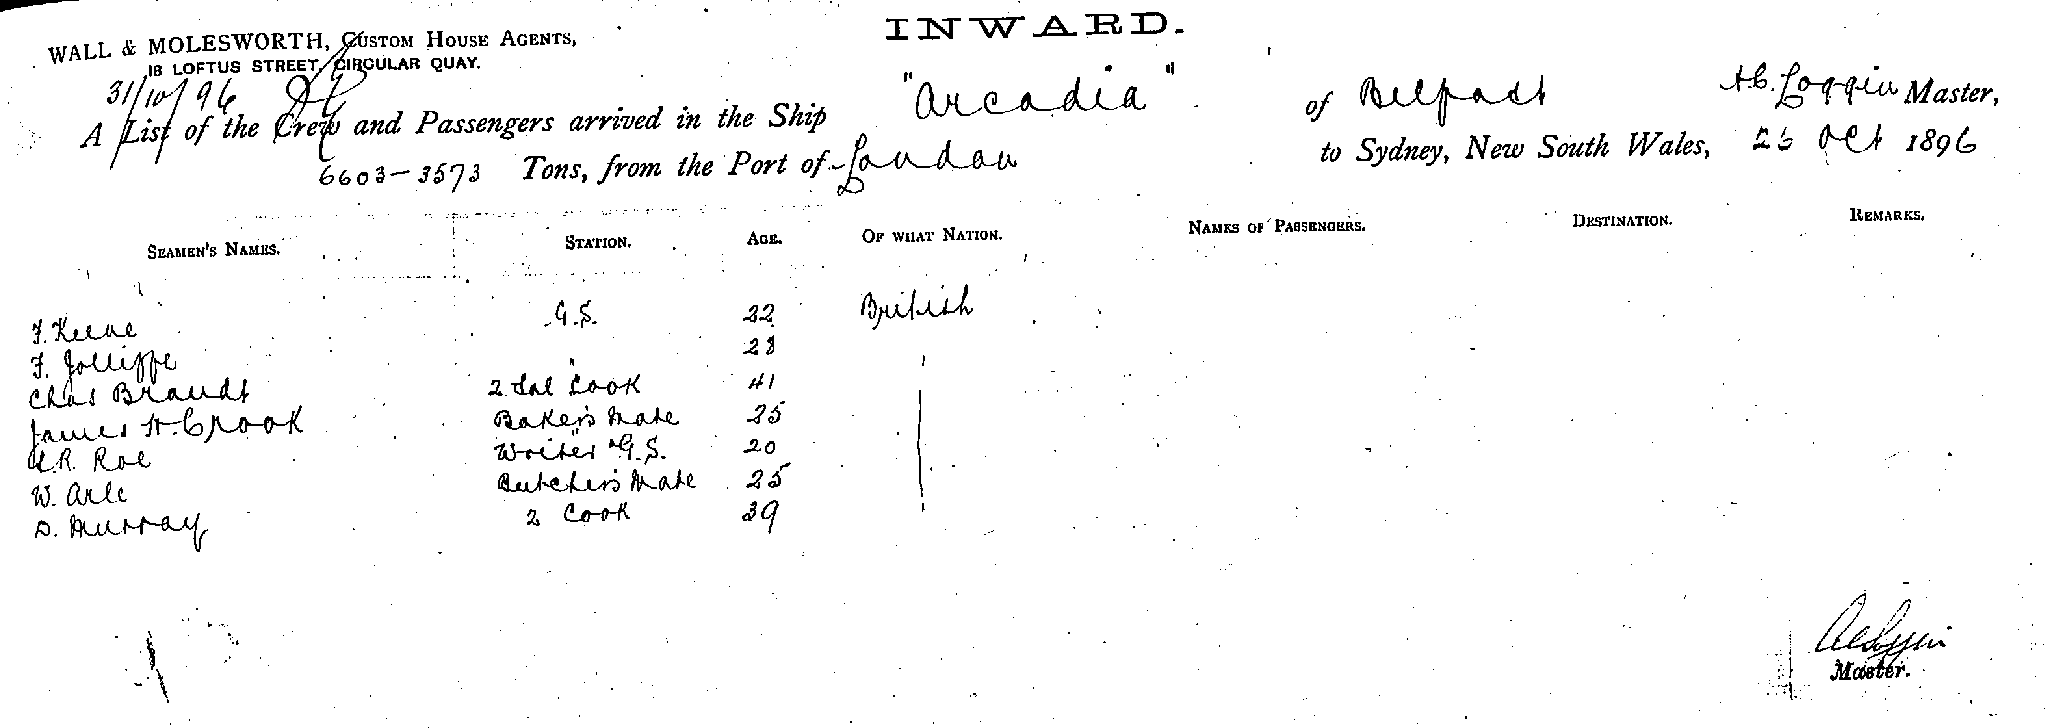 INWARD.
WALL & MOLESWORTH, CUSTOM HOUSE AGENTS,
18 LOFTUS STREET, CIRCULAR QUAY.
31/10/96
A List of the Crew and Passengers arrived in the Ship "Arcadia" of Belfast A.C. Loggin Master,
6603-3573 Tons, from the Port of London to Sydney, New South Wales, Oct 1896
SEAMEN'S NAMES. STATION. AGE. OF WHAT NATION. NAMES OF PASSENGERS. DESTINATION. REMARKS.
F. Keene G.S. 22 British
F. Jolliffe " 28
Chas Brandt 2 Sal Cook 41
James H. Crook Baker's Mate 25
R. Roe Writer & G.S. 20
W. Arle Butcher's Mate 25
D. Murray 2 Cook 39
A C Loggin
Master.